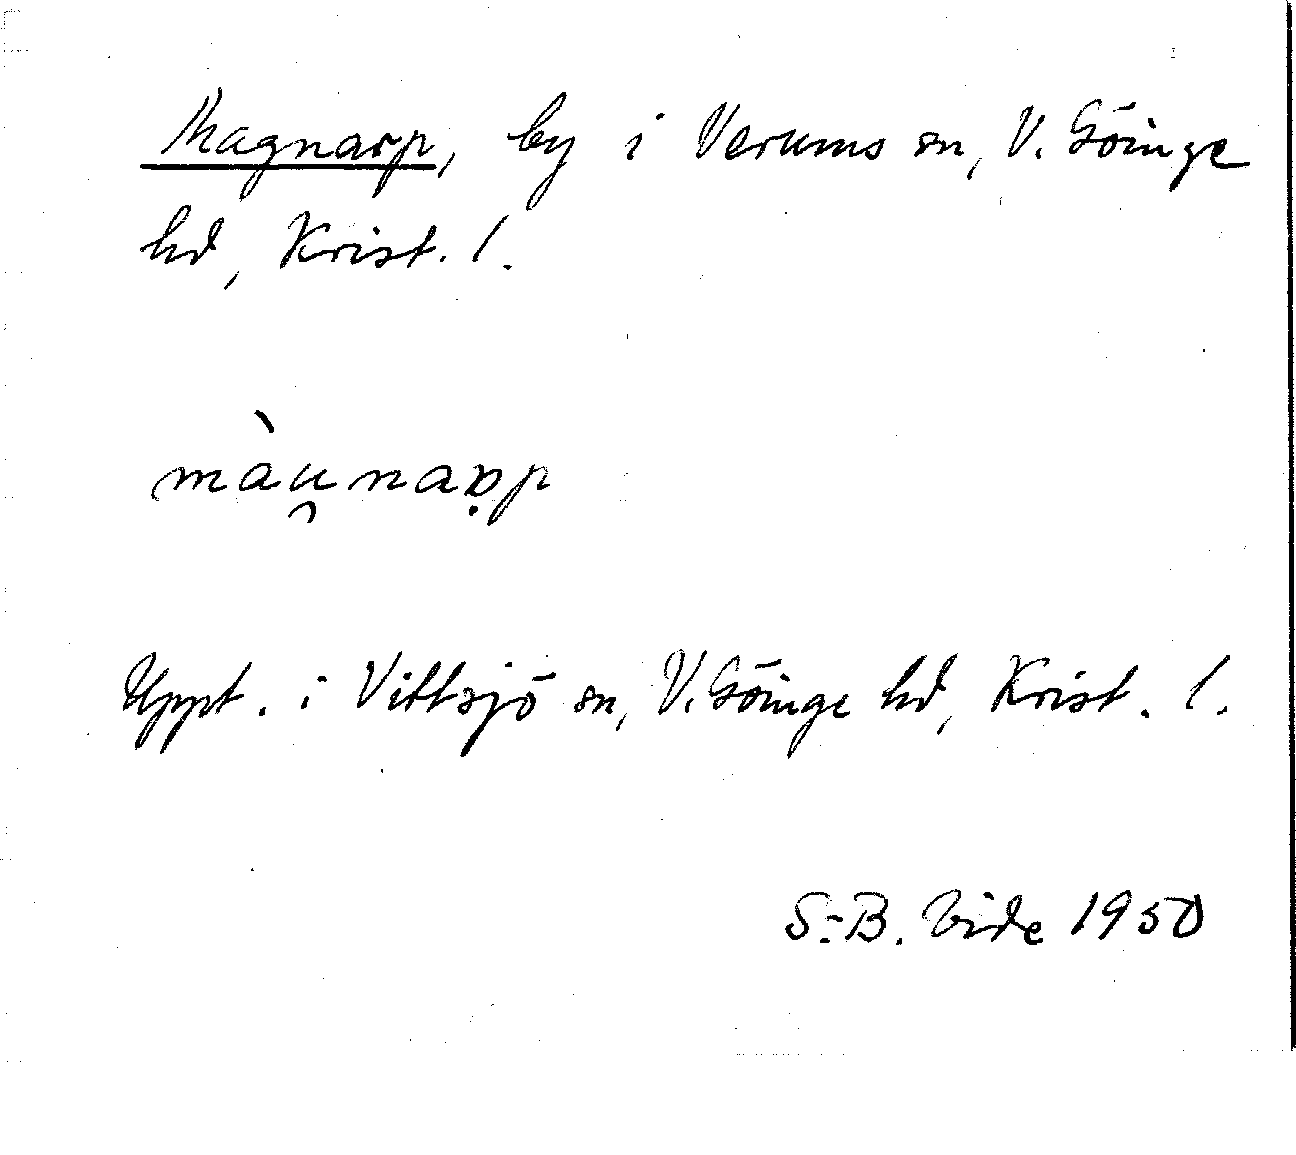 Magnarp, by i Verums sn, V. Göinge
hd, Krist. l.
màu̯narp
Uppt. i Vittsjö sn, V. Göinge hd, Krist. l.
S.-B. Vide 1950